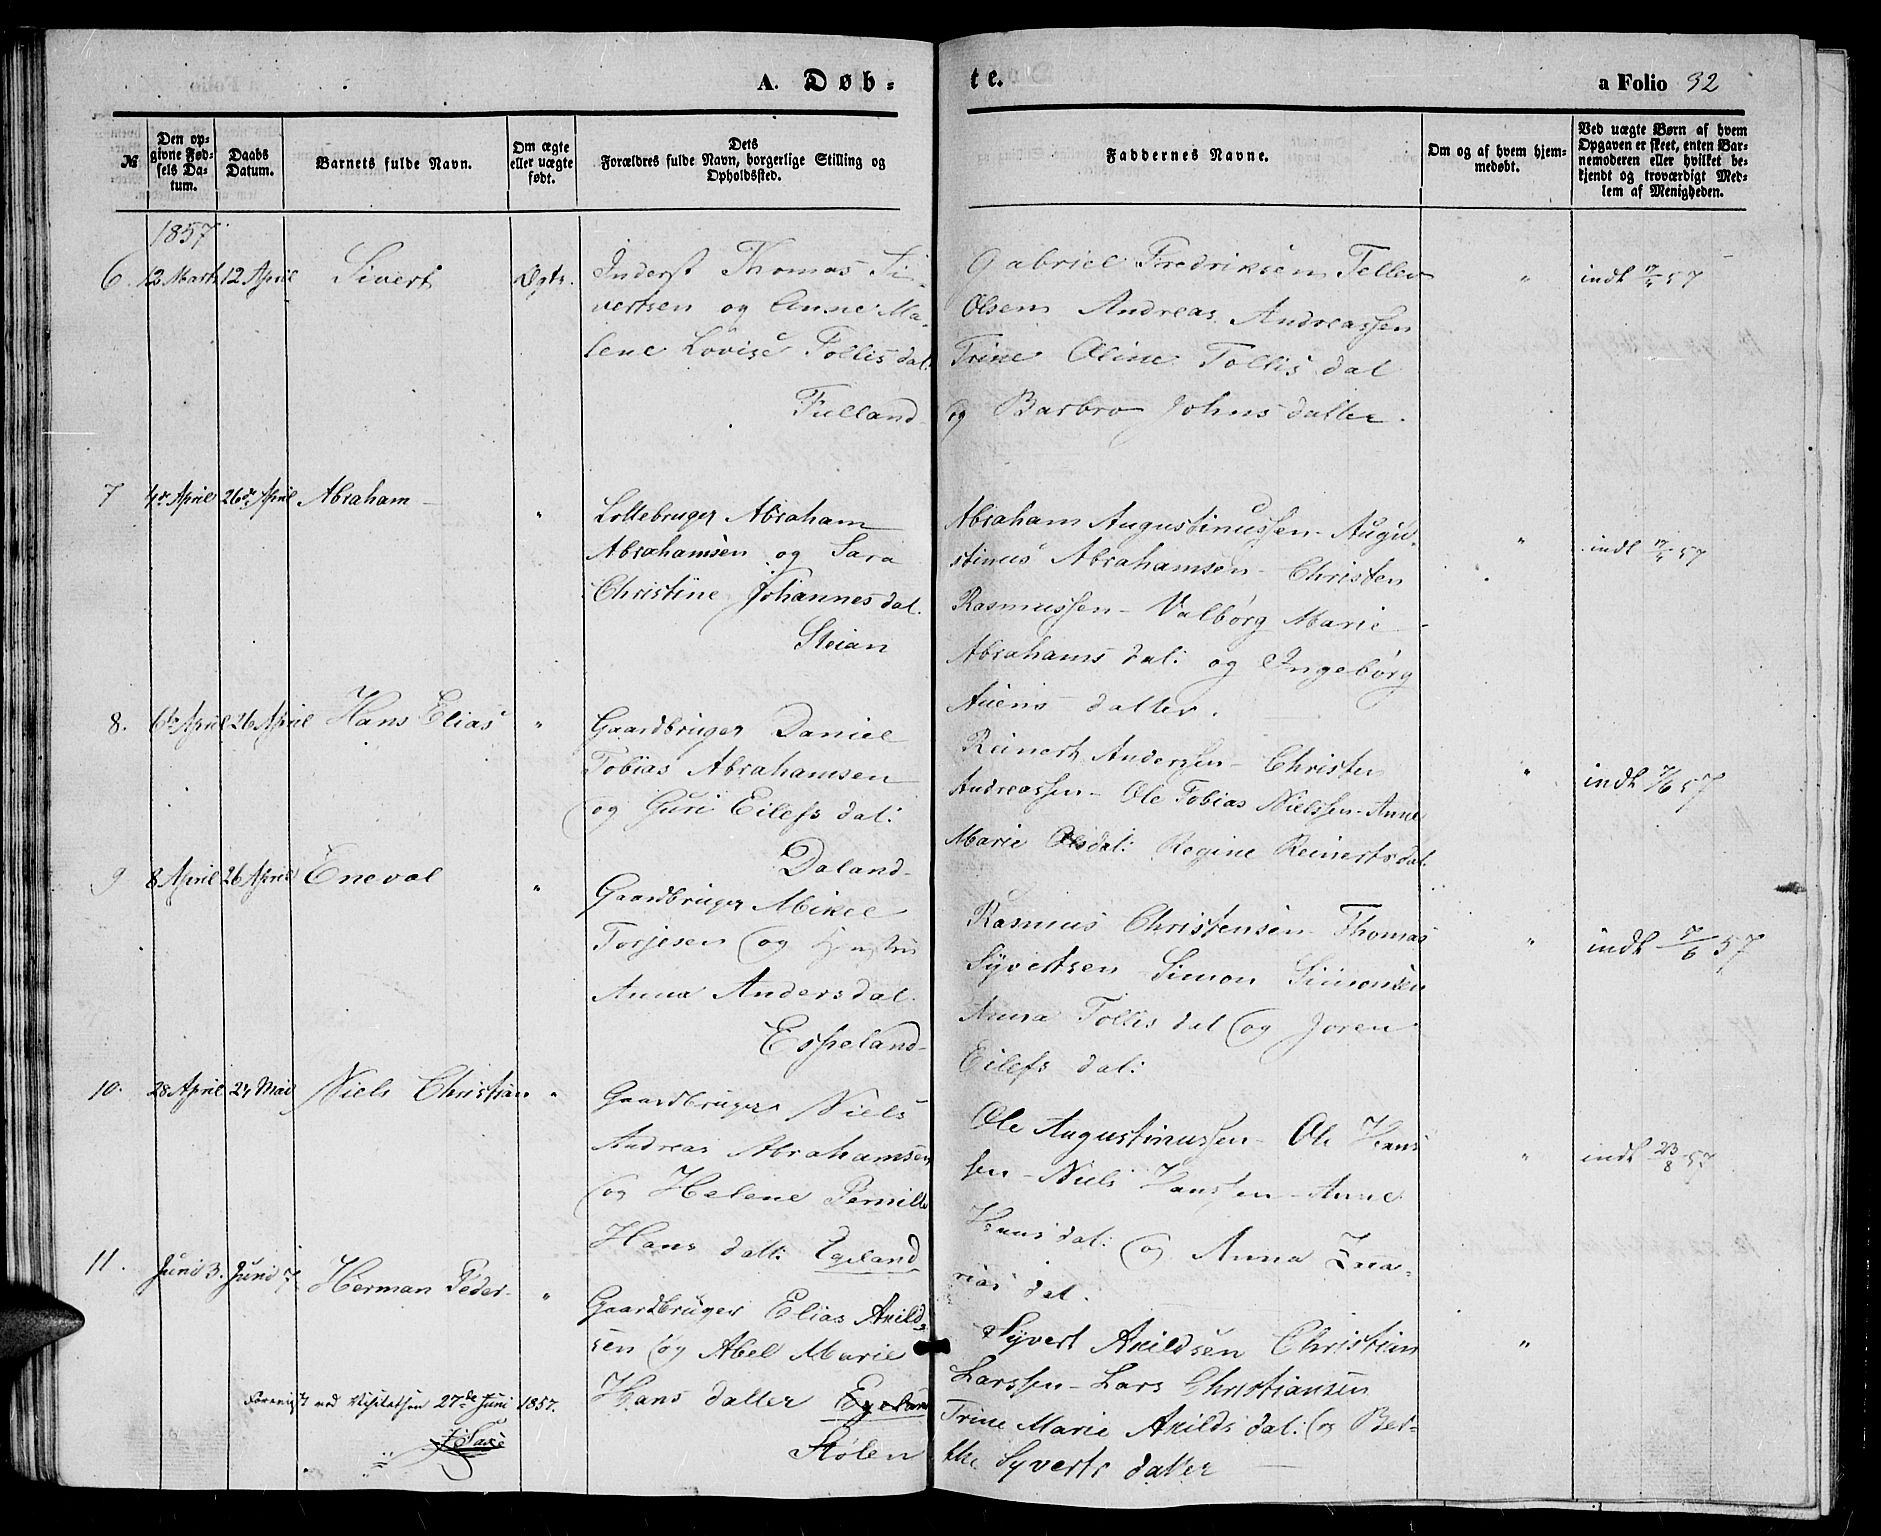 A. Døbte.
a Folio 32
№
Den opgivne Fødsels Datum.
Daabs Datum.
Barnets fulde Navn.
Om ægte eller uægte født.
Dets Forældres fulde Navn, borgerlige Stilling og Opholdssted.
Faddernes Navne.
Om og af hvem hjemmedøbt.
Ved uægte Børn af hvem Opgaven er skeet, enten Barnemoderen eller hvilket bekjendt og troværdigt Medlem af Menigheden.
1857
6. 12 Marts 12 April Sivert Ægte.
Inderst Thomas Si-
vertsen og Anne Ma-
lene Lovise Tollisdal:
Fulland
Gabriel Fredriksen Tellev
Olsen Andreas Andreassen
Trine Oline Tollisdal
og Barbro Johnsdatter.
" indt 17/5 57
7 4de April 26de April Abraham "
Lottebruger Abraham
Abrahamsen og Sara
Christine Johannesdal.
Steian
Abraham Augustinussen - Augu-
stinus Abrahamsen - Christen
Rasmussen - Valborg Marie
Abrahamsdal: og Ingeborg
Auensdatter.
" indt 17/5 57
8. 6te April 26 April Hans Elias "
Gaardbruger Daniel
Tobias Abrahamsen
og Guri Eilefsdal:
Daland
Reinert Andersen - Christen
Andreassen - Ole Tobias Nielssen - Anne
Marie Olsdal: Regine Reinertsdal.
" indt 7/6 57
9 8 April 26 April Eneval "
Gaardbruger Mikel
Torjesen og Hustru
Anna Andersdal.
Espeland
Rasmus Christensen - Thomas
Syvertsen Simon Simonsen
Anna Tollisdal og Joren
Eilefsdal:
" indt 7/6 57
10. 28 April 24 Mai Niels Christian "
Gaardbruger Niels
Andreas Abrahamsen
og Helene Pernille
Hansdatt: Egeland
Ole Augustinussen - Ole Hans-
sen - Niels Hanssen - Anne
Hansdal: og Anna Zaca-
riasdal.
" indt 23/8 57
11. Juni 3. Juni 7. Herman Peder "
Gaardbruger Elias Arild-
sen og Abel Marie
Hansdatter Egeland
Stølen
Syvert Arildsen Christian
Larssen - Lars Christiansen
Trine Marie Arildsdal: og Ber-
the Syvertsdatter
"
Foreviist ved Visitatsen 27de Juni 1857.